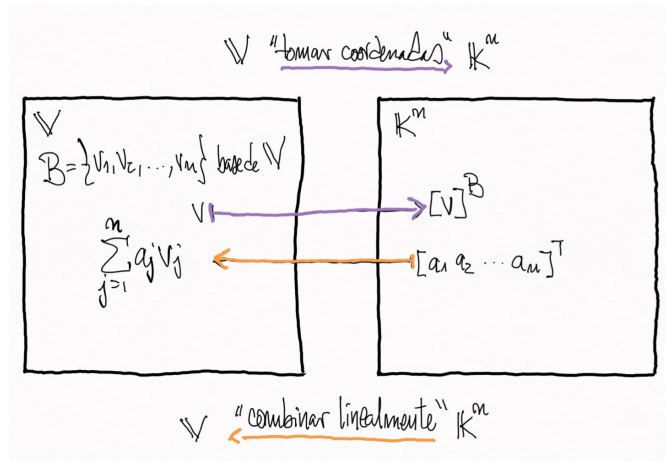 𝕍 "tomar coordenadas" 𝕂ⁿ
𝕍
𝕂ⁿ
B = {v₁, v₂, ..., vₙ} base de 𝕍
v
[v]ᴮ
n
∑ aⱼvⱼ
j=1
[a₁ a₂ ⋯ aₙ]ᵀ
𝕍 "combinar linealmente" 𝕂ⁿ